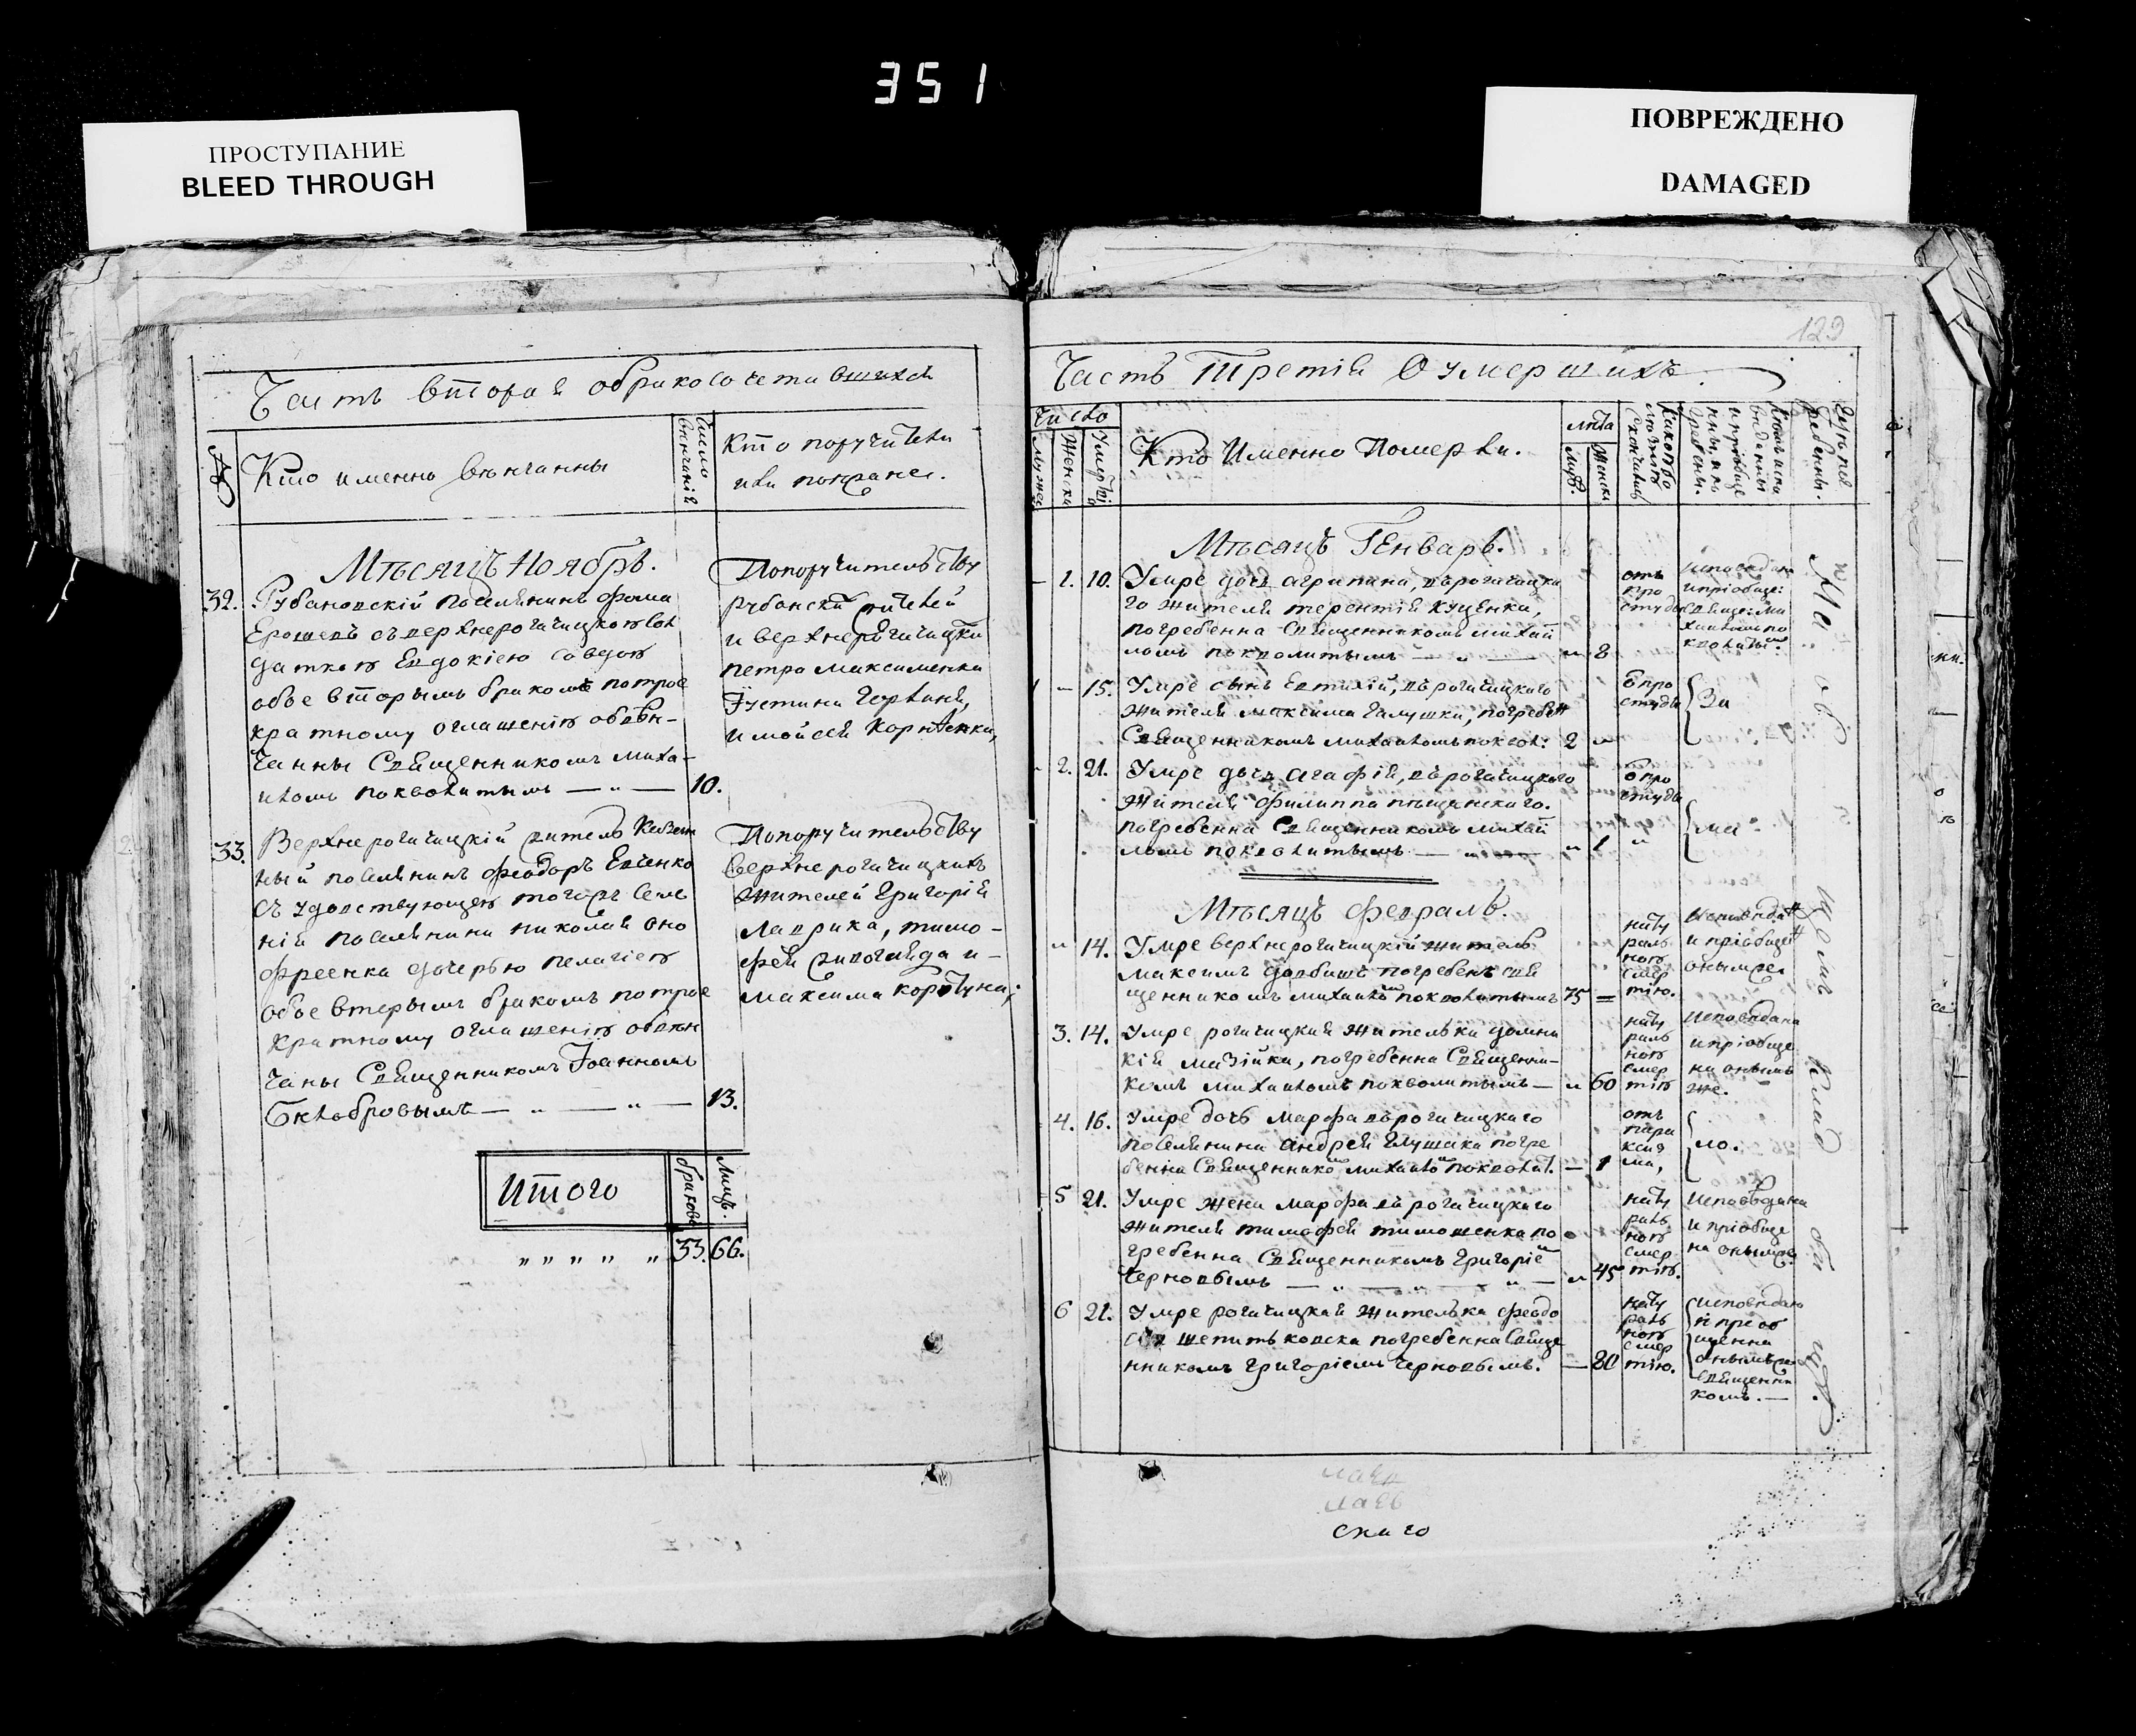 351
ПРОСТУПАНИЕ
BLEED THROUGH
ПОВРЕЖДЕНО
DAMAGED
Часть вторая о бракосочетавшихся
№
Кто именно венчанны
Число венчаній
Кто поручители
или поизране.
Мѣсяцъ Ноябрь.
32.
Рубановскій поселянинъ Фома
съ верхнерогачицкою сол
даткою Евдокіею
обое вторымъ бракомъ по трое
кратному оглашенію обвѣн-
чанны Священникомъ Миха-
иломъ Поководитымъ — „ — 10.
По поручительству
жителей
и верхнерогачицки
Петра Максименка
и Мойсея Корнѣенка,
33.
Верхнерогачицкій житель казен
ный поселянинъ Феодоръ Евсенко
съ удовствующею тогожъ селе
нія поселянина Николая Оно
фреенка дочерью Пелагіею
обое вторымъ бракомъ по трое
кратному оглашенію обвѣн
чаны Священникомъ Іоанномъ
Бклобровымъ — „ — „ — 13.
По поручительству
верхнерогачицкихъ
жителей Григорія
Лаврика, Тимо-
фея и-
Максима Коротуна;
Итого
браковъ
Лицъ.
„ „ „ „ „ 33. 66.
129
Часть Третія О умершихъ.
Число
Мужес
Женска
Умертві
Кто Именно Померли.
лѣта
муж.
Женск
Мѣсяцъ Генварь.
— 1. 10. Умре дочь Агрипина, в. рогачицка
го жителя Терентія Куценка,
погребенна Священникомъ Михай
ломъ Поководитымъ — „ — „ 8
отъ
про
студы
исповѣдана
и пріобще:
Священ: Ми
хаиломъ По
1 — 15. Умре сынъ Евтихій, в. рогачицкого
жителя Максима Галушки, погребен
Священникомъ Михаиломъ Поковод: 2 „
о про
студы
За
„ 2. 21. Умре дочь Агафія, в. рогачицкого
жителя Филиппа Пѣщанского.
погребенна Священникомъ Михай
ломъ Поководитымъ — „ — „ 1
о про
студы
ма
Мѣсяцъ Февраль.
„ 14. Умре верхнерогачицкій житель
Максимъ Довбишъ погребенъ свя
щенникомъ Михаиломъ Поководитымъ 75 =
нату
раль
ною
смер
тію.
Исповѣдан
и пріобщен
онымже
3. 14. Умре рогачицкая жителька Домни
кія Мазійка, погребенна Священни-
комъ Михаиломъ Поководитымъ — „ 60
нату
раль
ною
смер
тію
Исповѣдана
и пріобще
на онымъ
же.
4. 16. Умре дочь Марфа в. рогачицкаго
поселянина Андрея Глущака погре
бенна Священникомъ Михаиломъ Поководит. — 1
отъ
пара
ксиз
ма,
ло.
5 21. Умре жена Марфа в. рогачицкаго
жителя Тимофея Тимошенка по
гребенна Священникомъ Григоріем
Черновымъ — „ — „ — „ 45
нату
раль
ною
смер
тію.
Исповѣдана
и пріобще
на онымже
6 21. Умре рогачицкая жителька Феодо
сія погребенна Свяще
нникомъ Григоріемъ Черновымъ. — 80
нату
раль
ною
смер
тію.
исповѣдана
и приоб
щенна
онымже
Священни
комъ. —
На об
щомъ клад
би щѣ.
скаго